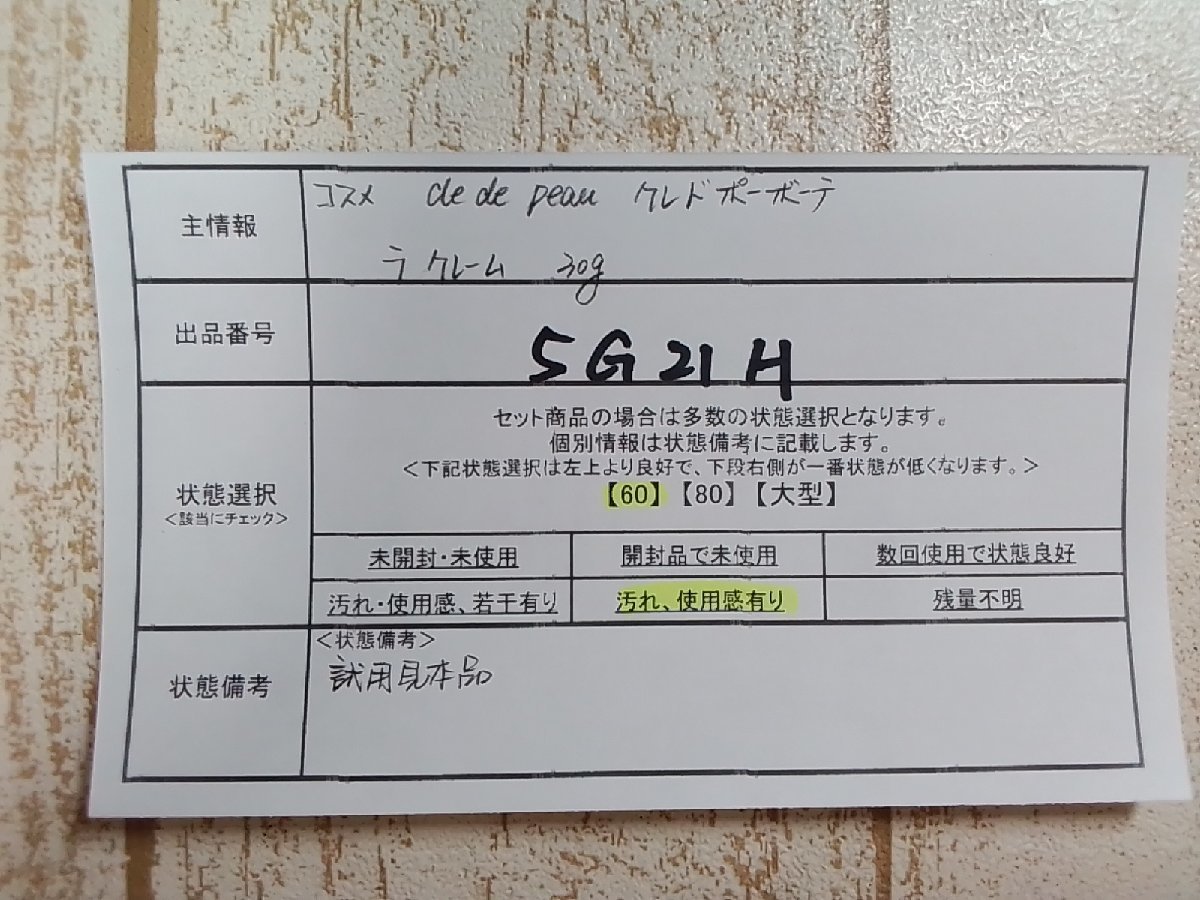 主情報
コスメ cle de peau クレドポーボーテ
ラ クレーム 30g
出品番号
5G21H
状態選択
<該当にチェック>
セット商品の場合は多数の状態選択となります。
個別情報は状態備考に記載します。
<下記状態選択は左上より良好で、下段右側が一番状態が低くなります。>
【60】【80】【大型】
未開封・未使用 開封品で未使用 数回使用で状態良好
汚れ・使用感、若干有り 汚れ、使用感有り 残量不明
状態備考
<状態備考>
試用見本品